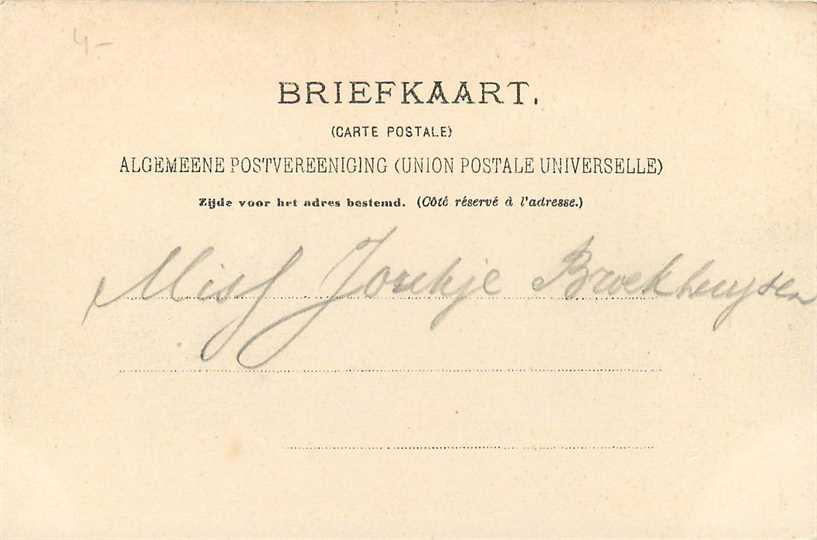 4-
BRIEFKAART.
(CARTE POSTALE)
ALGEMEENE POSTVEREENIGING (UNION POSTALE UNIVERSELLE)
Zijde voor het adres bestemd. (Côté réservé à l'adresse.)
Miss Broekhuysen